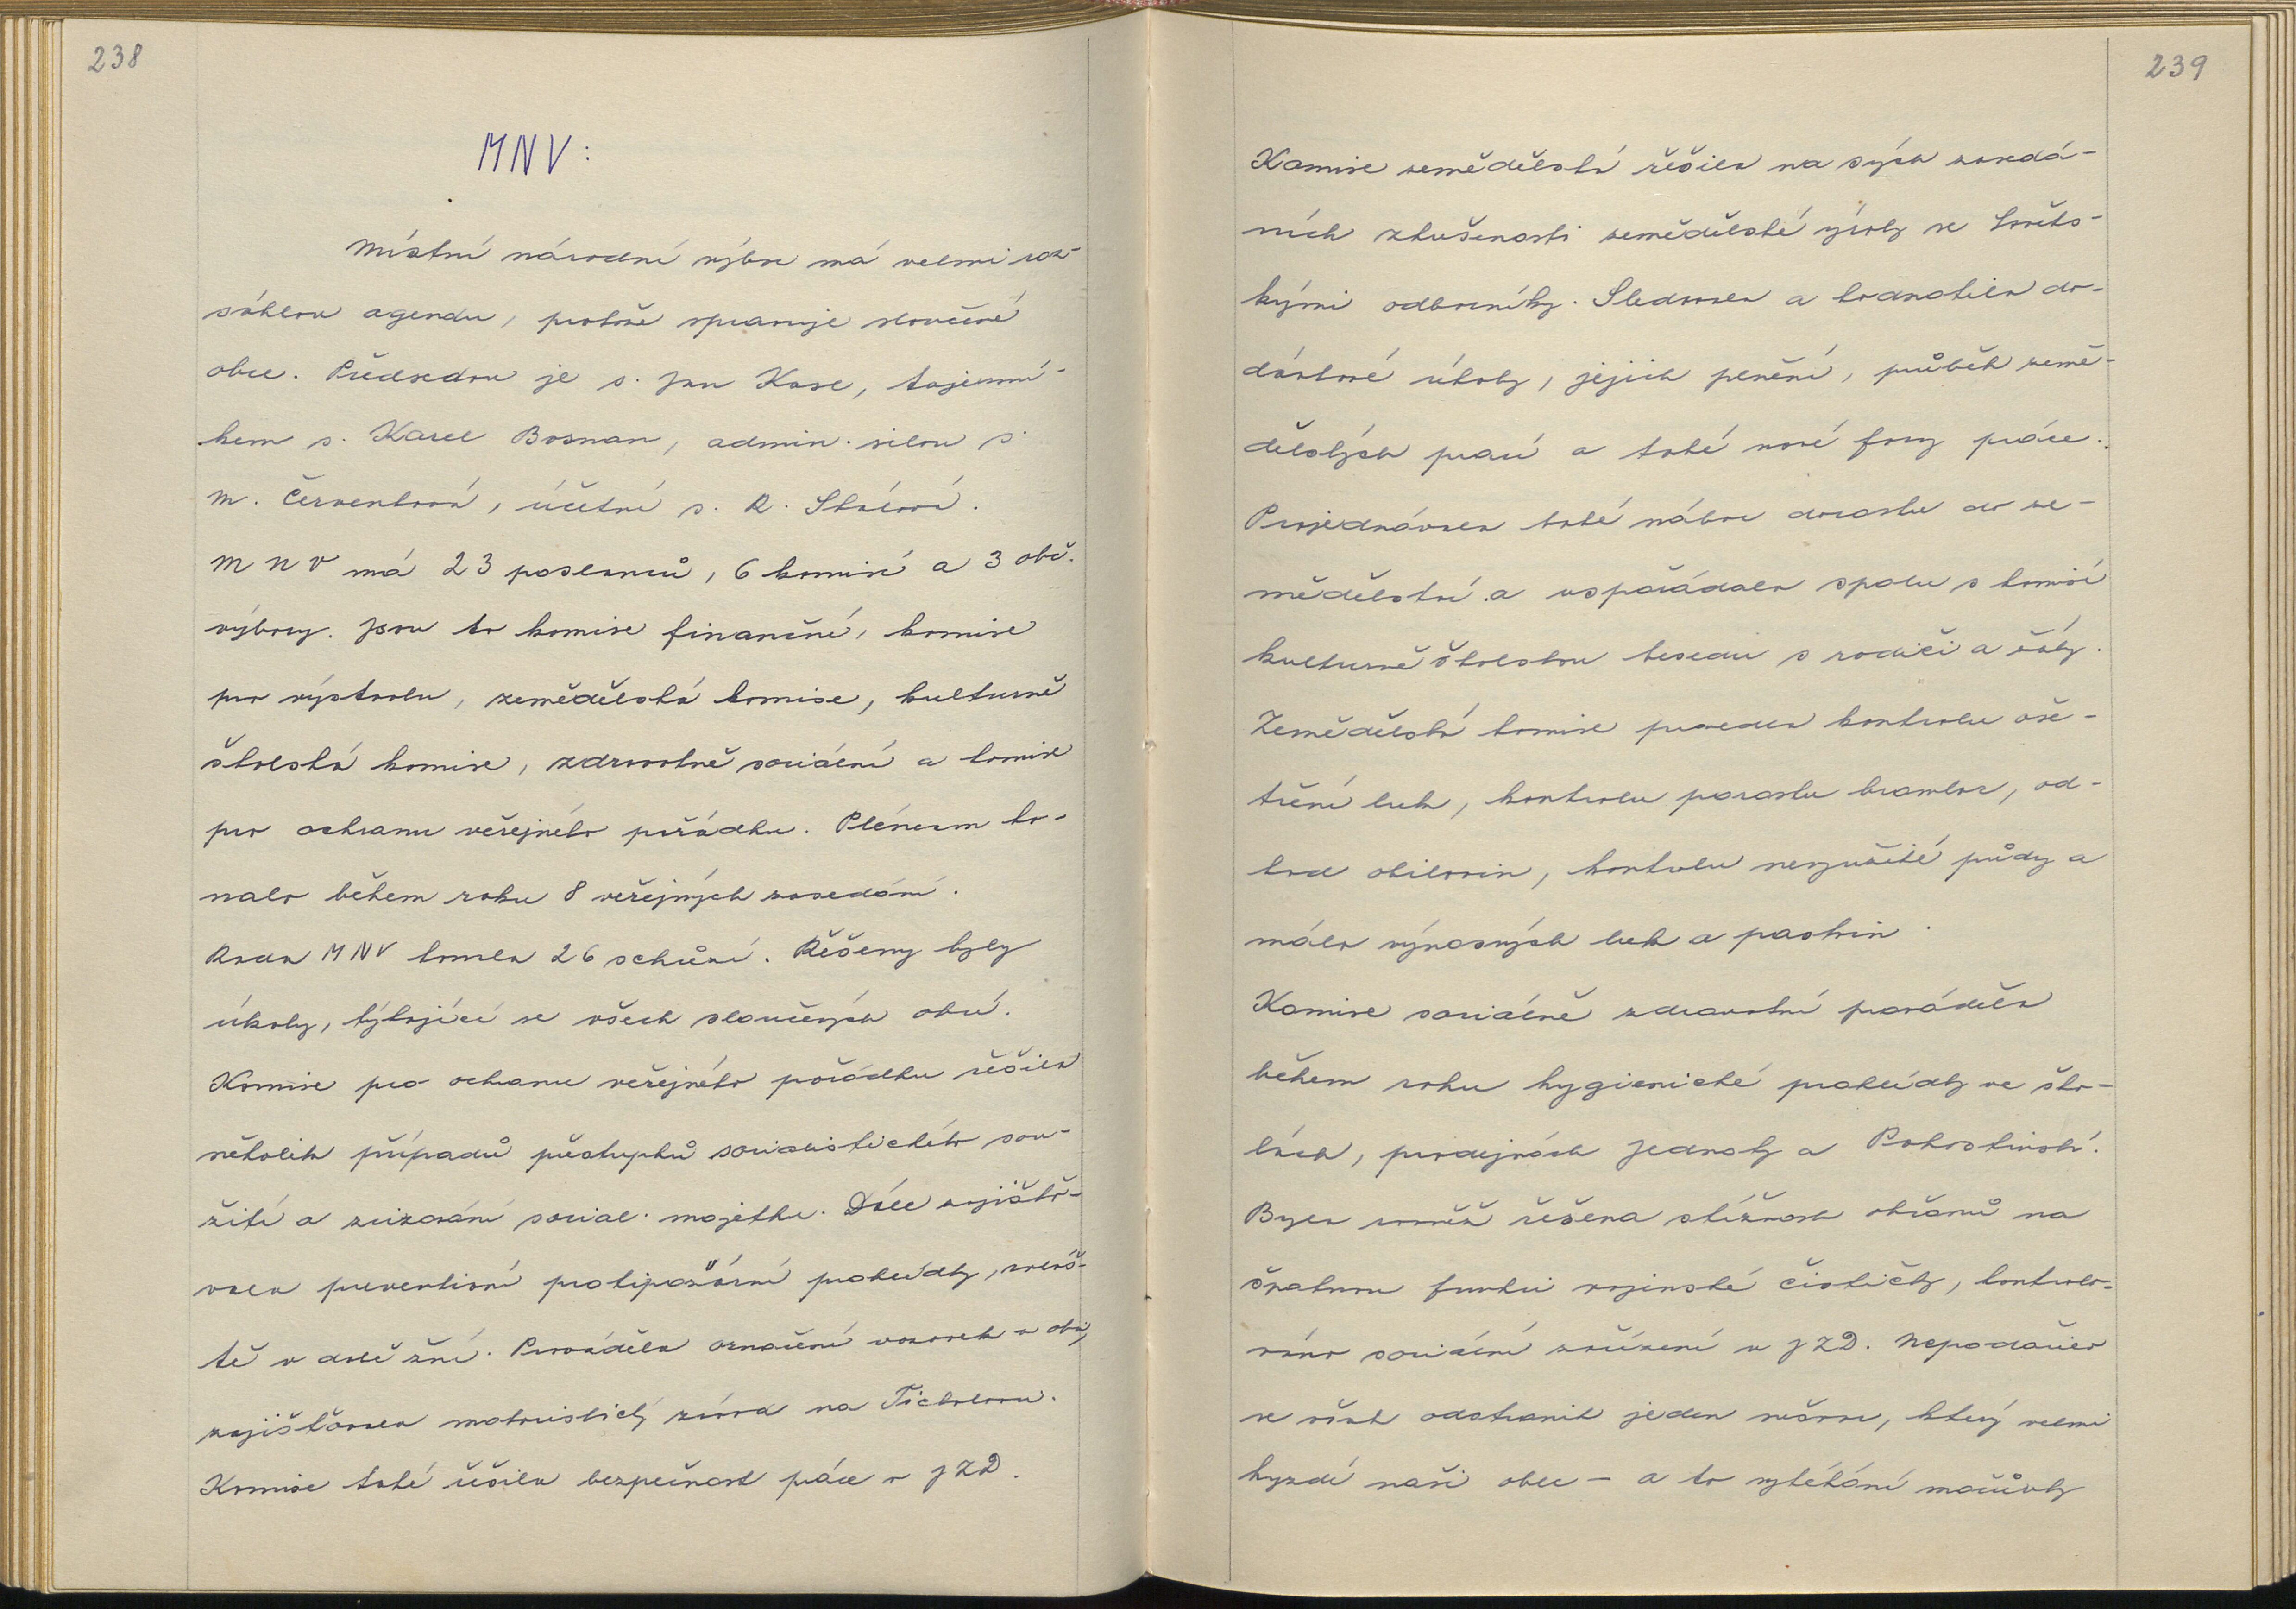 238
MNV:
Místní národní výbor má velmi roz-
sáhlou agendu, protože spravuje sloučené
obce. Předsedou je s. Jan Kase, tajemní-
kem s. Karel Bosman, admin. silou s.
M. Červenková, účetní s. R.
M N V má 23 poslanců, 6 komisí a 3 obč.
výbory. Jsou to komise finanční, komise
pro výstavbu, zemědělská komise, kulturně
školská komise, zdravotně sociální a komise
pro ochranu veřejného pořádku. Plénum ko-
nalo během roku 8 veřejných zasedání.
Rada MNV konala 26 schůzí. Řešeny byly
úkoly, týkající se všech sloučených obcí.
Komise pro ochranu veřejného pořádku řešila
několik případů přestupků socialistického sou-
žití a zcizování social. majetku. Dále zajišťo-
vala preventivní protipožární prohlídky, zvláš-
tě v době žní. Prováděla označení vozovek v obci,
zajišťovala motoristický závod na
Komise také řešila bezpečnost práce v JZD.
239
Komise zemědělská řešila na svých zasedá-
ních zkušenosti zemědělské výroby se Sověts-
kými odborníky. Sledovala a hodnotila do-
dávkové úkoly, jejich plnění, průběh země-
dělských prací a také nové formy práce.
Projednávala také nábor dorostu do ze-
mědělství a uspořádala spolu s komisí
kulturně školskou besedu s rodiči a žáky.
Zemědělská komise provedla kontrolu oše-
tření luk, kontrolu porostu brambor, od-
had obilovin, kontrolu nevyužité půdy a
málo výnosných luk a pastvin.
Komise sociálně zdravotní prováděla
během roku hygienické prohlídky ve ško-
lách, prodejnách Jednoty a Pohostinství.
Byla rovněž řešena stížnost občanů na
špatnou funkci vojenské čističky, kontrolo-
váno sociální zařízení v JZD. Nepodařilo
se však odstranit jeden nešvar, který velmi
hyzdí naši obec - a to vytékání močůvky